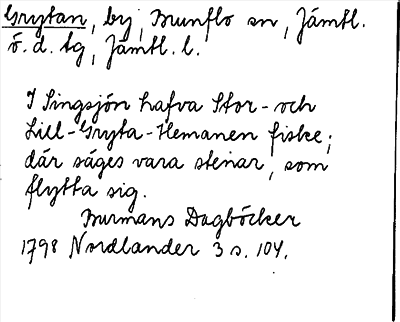 Grytan, by, Brunflo sn, Jämtl.
ö. d. tg, Jämtl. l.
I Singsjön hafva Stor- och
Lill-Gryta-Hemanen fiske;
där säges vara stenar, som
flytta sig.
Burmans Dagböcker
1798 Nordlander 3 s. 104.